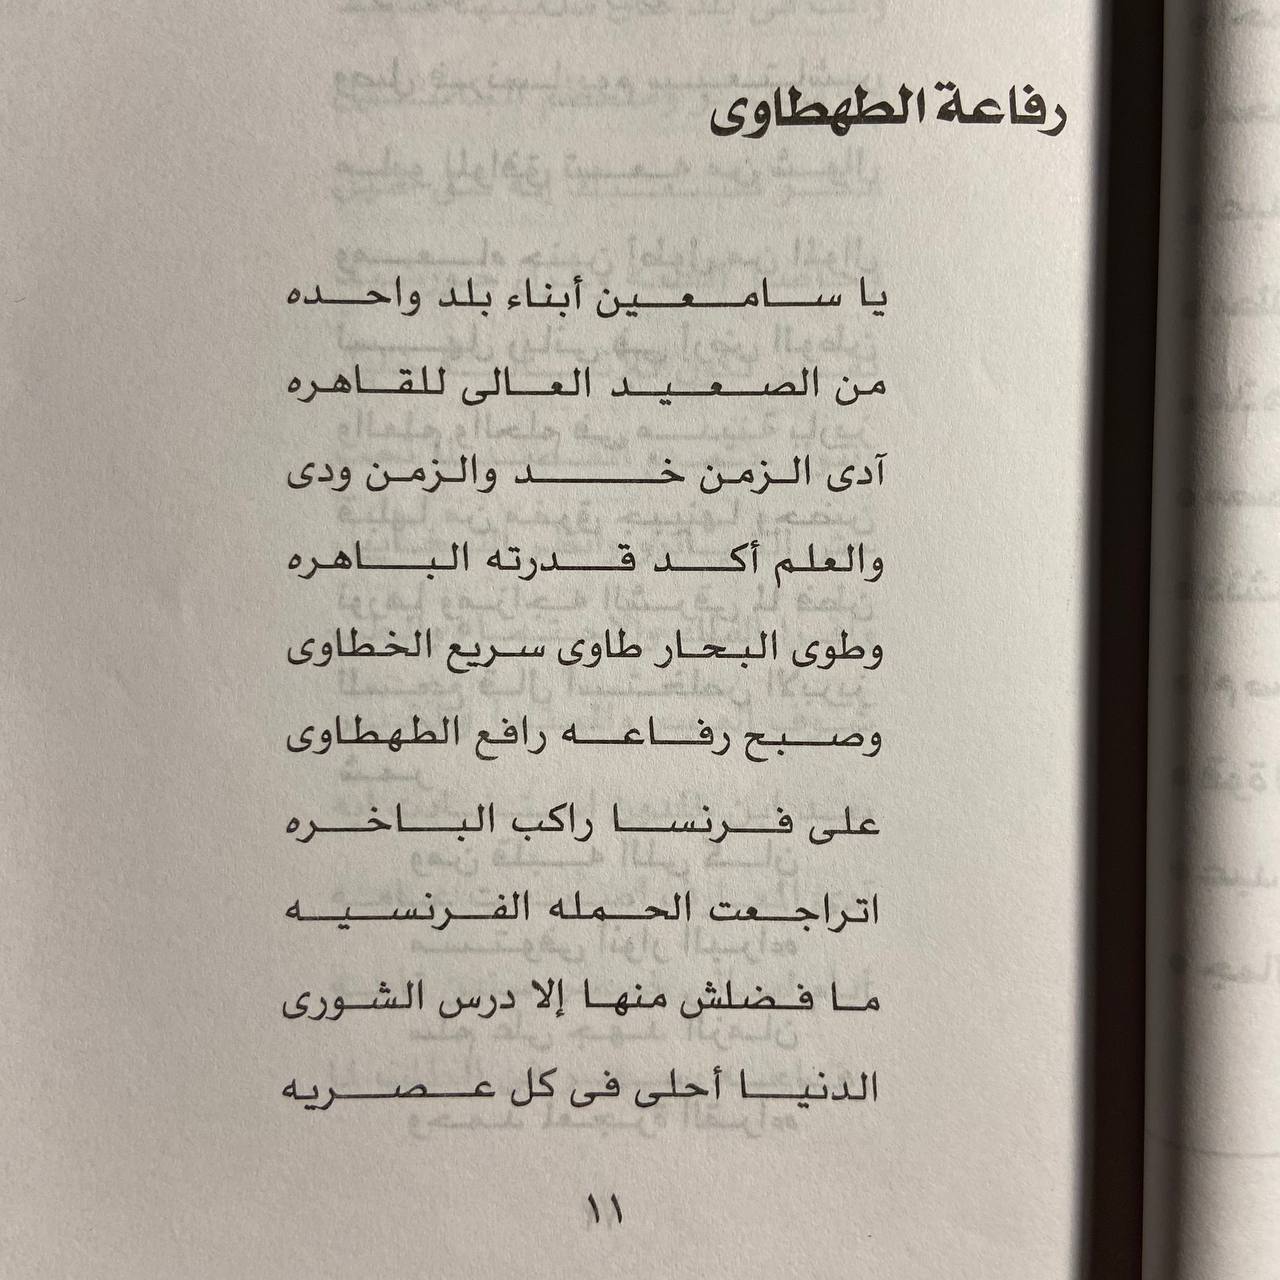 رفاعة الطهطاوى
يا سامعين أبناء بلد واحده
من الصعيد العالى للقاهره
آدى الزمن خد والزمن ودى
والعلم أكد قدرته الباهره
وطوى البحار طاوى سريع الخطاوى
وصبح رفاعه رافع الطهطاوى
على فرنسا راكب الباخره
اتراجعت الحمله الفرنسيه
ما فضلش منها إلا درس الشورى
الدنيا أحلى فى كل عصريه
١١